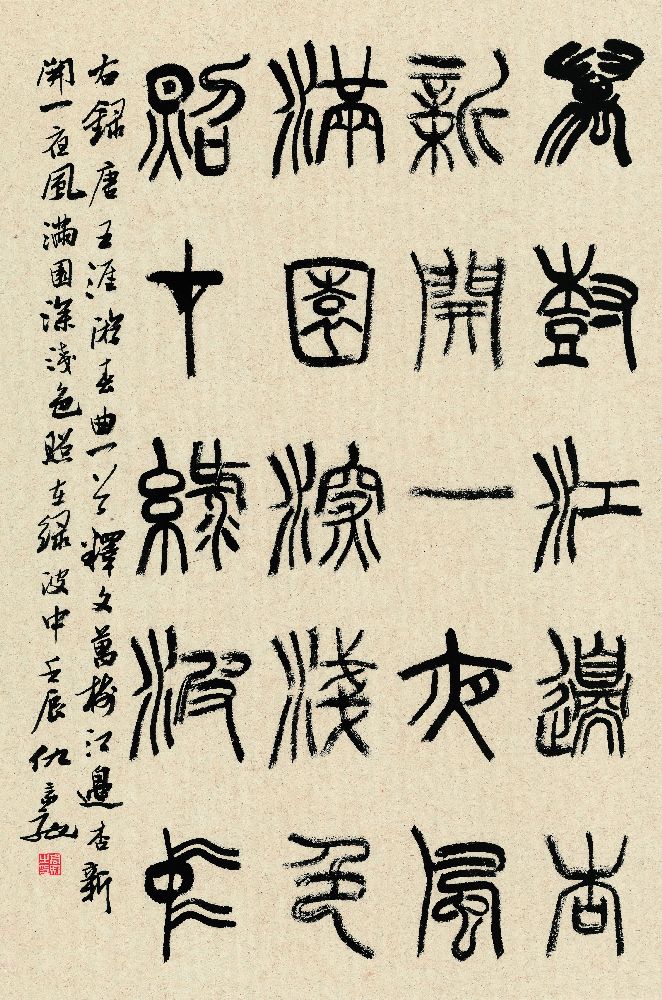 萬樹江邊杏
新開一夜風
滿園深淺色
照在綠波中
右録唐王涯游春曲一首釋文萬樹江邊杏新
開一夜風滿園深淺色照在緑波中壬辰仇高驰